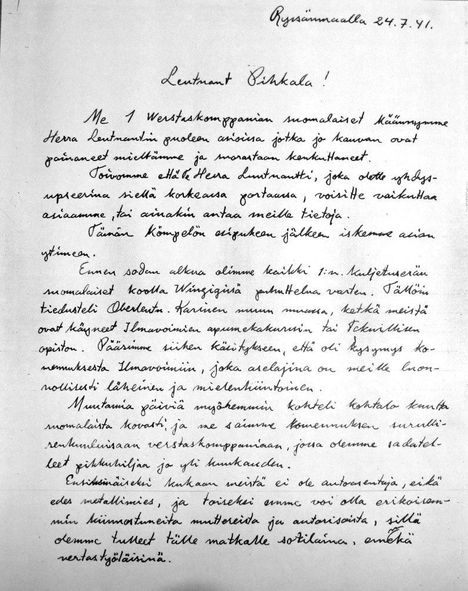 Ryssänmaalla 24.7.41.
Leutnant Pihkala!
Me 1 Werstaskomppanian suomalaiset käännymme
Herra Leutnantin puoleen asioissa jotka jo kauvan ovat
painaneet mieltämme ja suorastaan kenkuttaneet.
Toivomme että Te Herra Luutnantti, joka olette yhdys-
upseerina siellä korkeassa portaassa, voisitte vaikuttaa
asiaamme, tai ainakin antaa meille tietoja.
Tämän kömpelön esipuheen jälkeen iskemme asian
ytimeen.
Ennen sodan alkua olimme kaikki 1:n. Kuljetuserän
suomalaiset koolla Wingigissä puhuttelua varten. Tällöin
tiedusteli Oberleutn. Karinen muun muassa, ketkä meistä
ovat käyneet Ilmavoimien apumekukurssin tai Teknillisen
opiston. Pääsimme siihen käsitykseen, että oli kysymys ko-
mennuksesta Ilmavoimiin, joka aselajina on meille luon-
nollisesti läheinen ja mielenkiintoinen.
Muutamia päiviä myöhemmin kohteli kohtalo kuutta
suomalaista kovasti, ja ne saimme komennuksen surulli-
senkuuluisaan verstaskomppaniaan, jossa olemme sadatel-
leet pikkuhiljaa jo yli kuukauden.
Ensiksikin kukaan meistä ei ole autoasentaja, eikä
edes metallimies, ja toiseksi emme voi olla erikoisem-
min kiinnostuneita muttereista ja autonosista, sillä
olemme tulleet tälle matkalle sotilaina, emmekä
verstastyöläisinä.